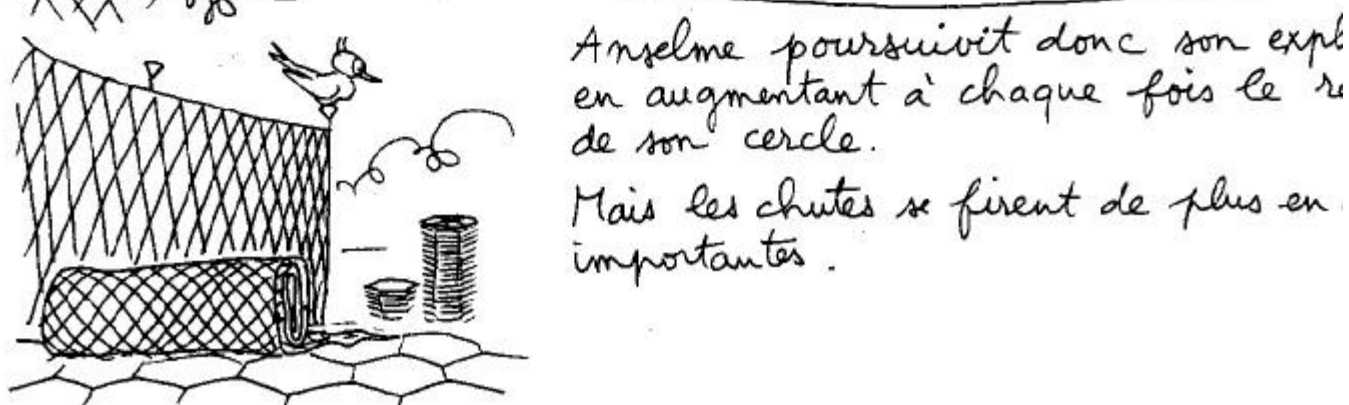 Anselme poursuivit donc son
en augmentant à chaque fois le
de son cercle.
Mais les chutes se firent de plus en
importantes.